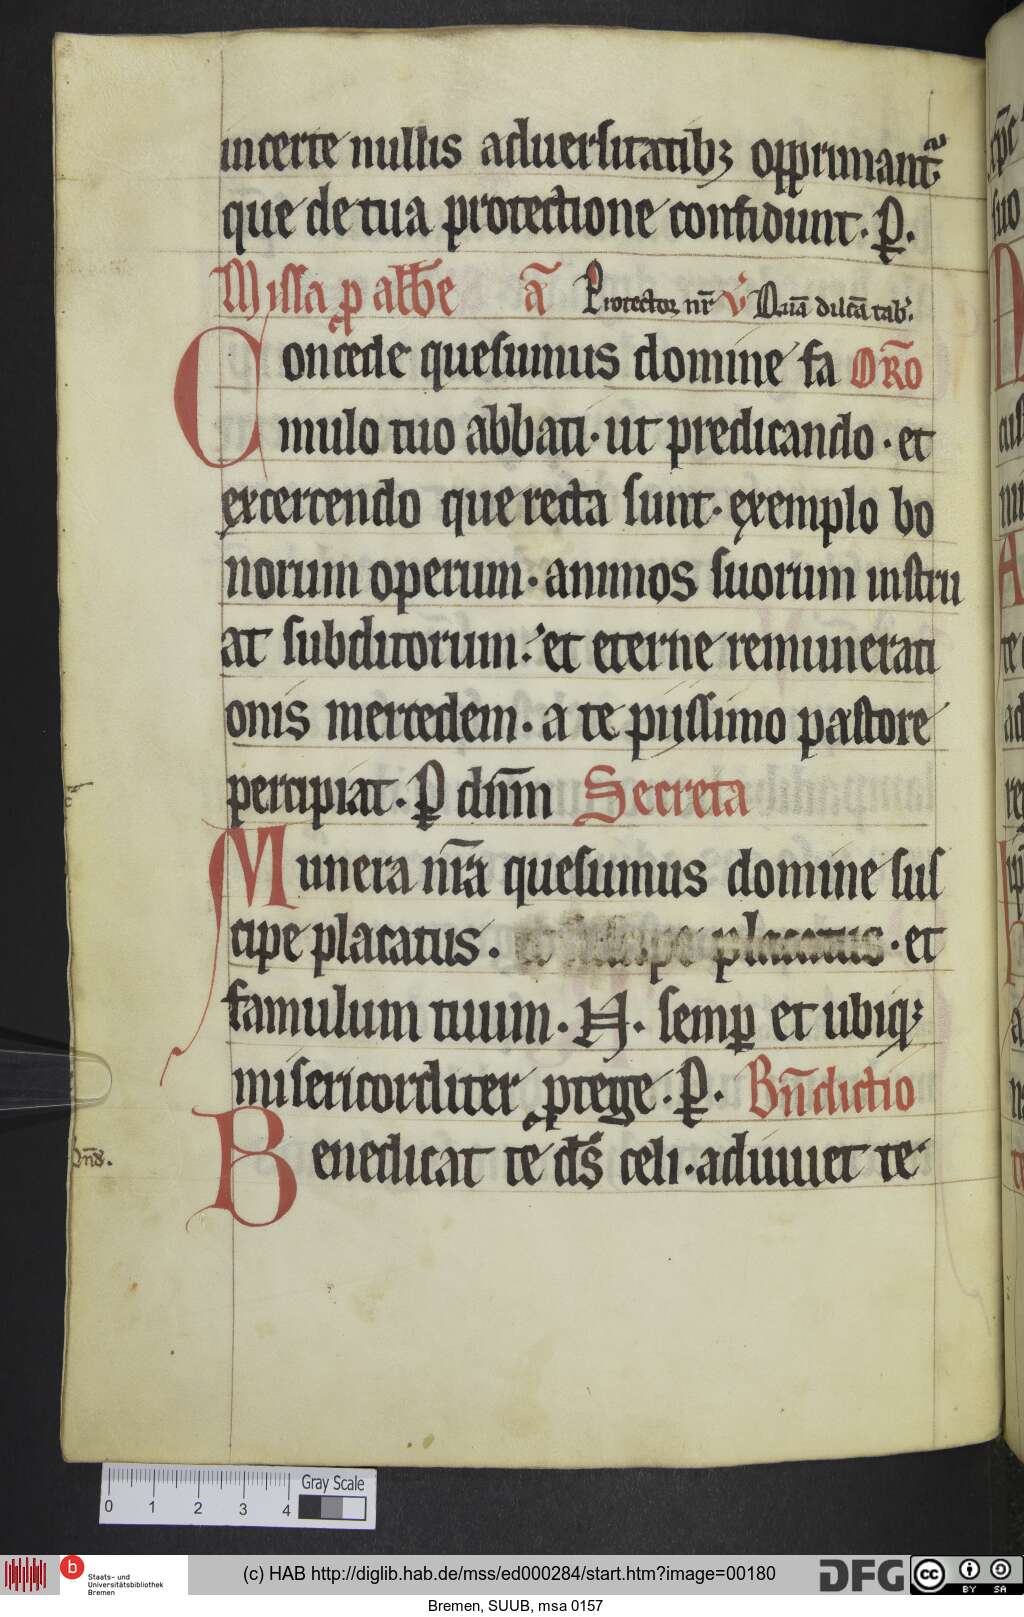 incerte nullis aduersitatibꝫ opprimant᷑
que de tua protectione confidunt. P̲.
Missa ꝓ abb̄e a᷑ Protector nr̄ v̾ Quā dilc̄a tab̾.
Concede quesumus domine fa Or̄o
mulo tuo abbati. ut predicando. et
excercendo que recta sunt. exemplo bo
norum operum. animos suorum instru
at subditorum. et eterne remunerati
onis mercedem. a te piissimo pastore
percipiat. P̲ dn̄m Secreta
Munera nr̄a quesumus domine sus
cipe placatus. et suscipe placatus. et
famulum tuum. N. semꝑ et ubiqꝫ
misericorditer ꝓtege. P̲. Bn̄dictio
Benedicat te ds̄ celi. adiuuet te
0 1 2 3 4 Gray Scale
b Staats- und Universitätsbibliothek Bremen
(c) HAB http://diglib.hab.de/mss/ed000284/start.htm?image=00180
DFG cc BY SA
Bremen, SUUB, msa 0157